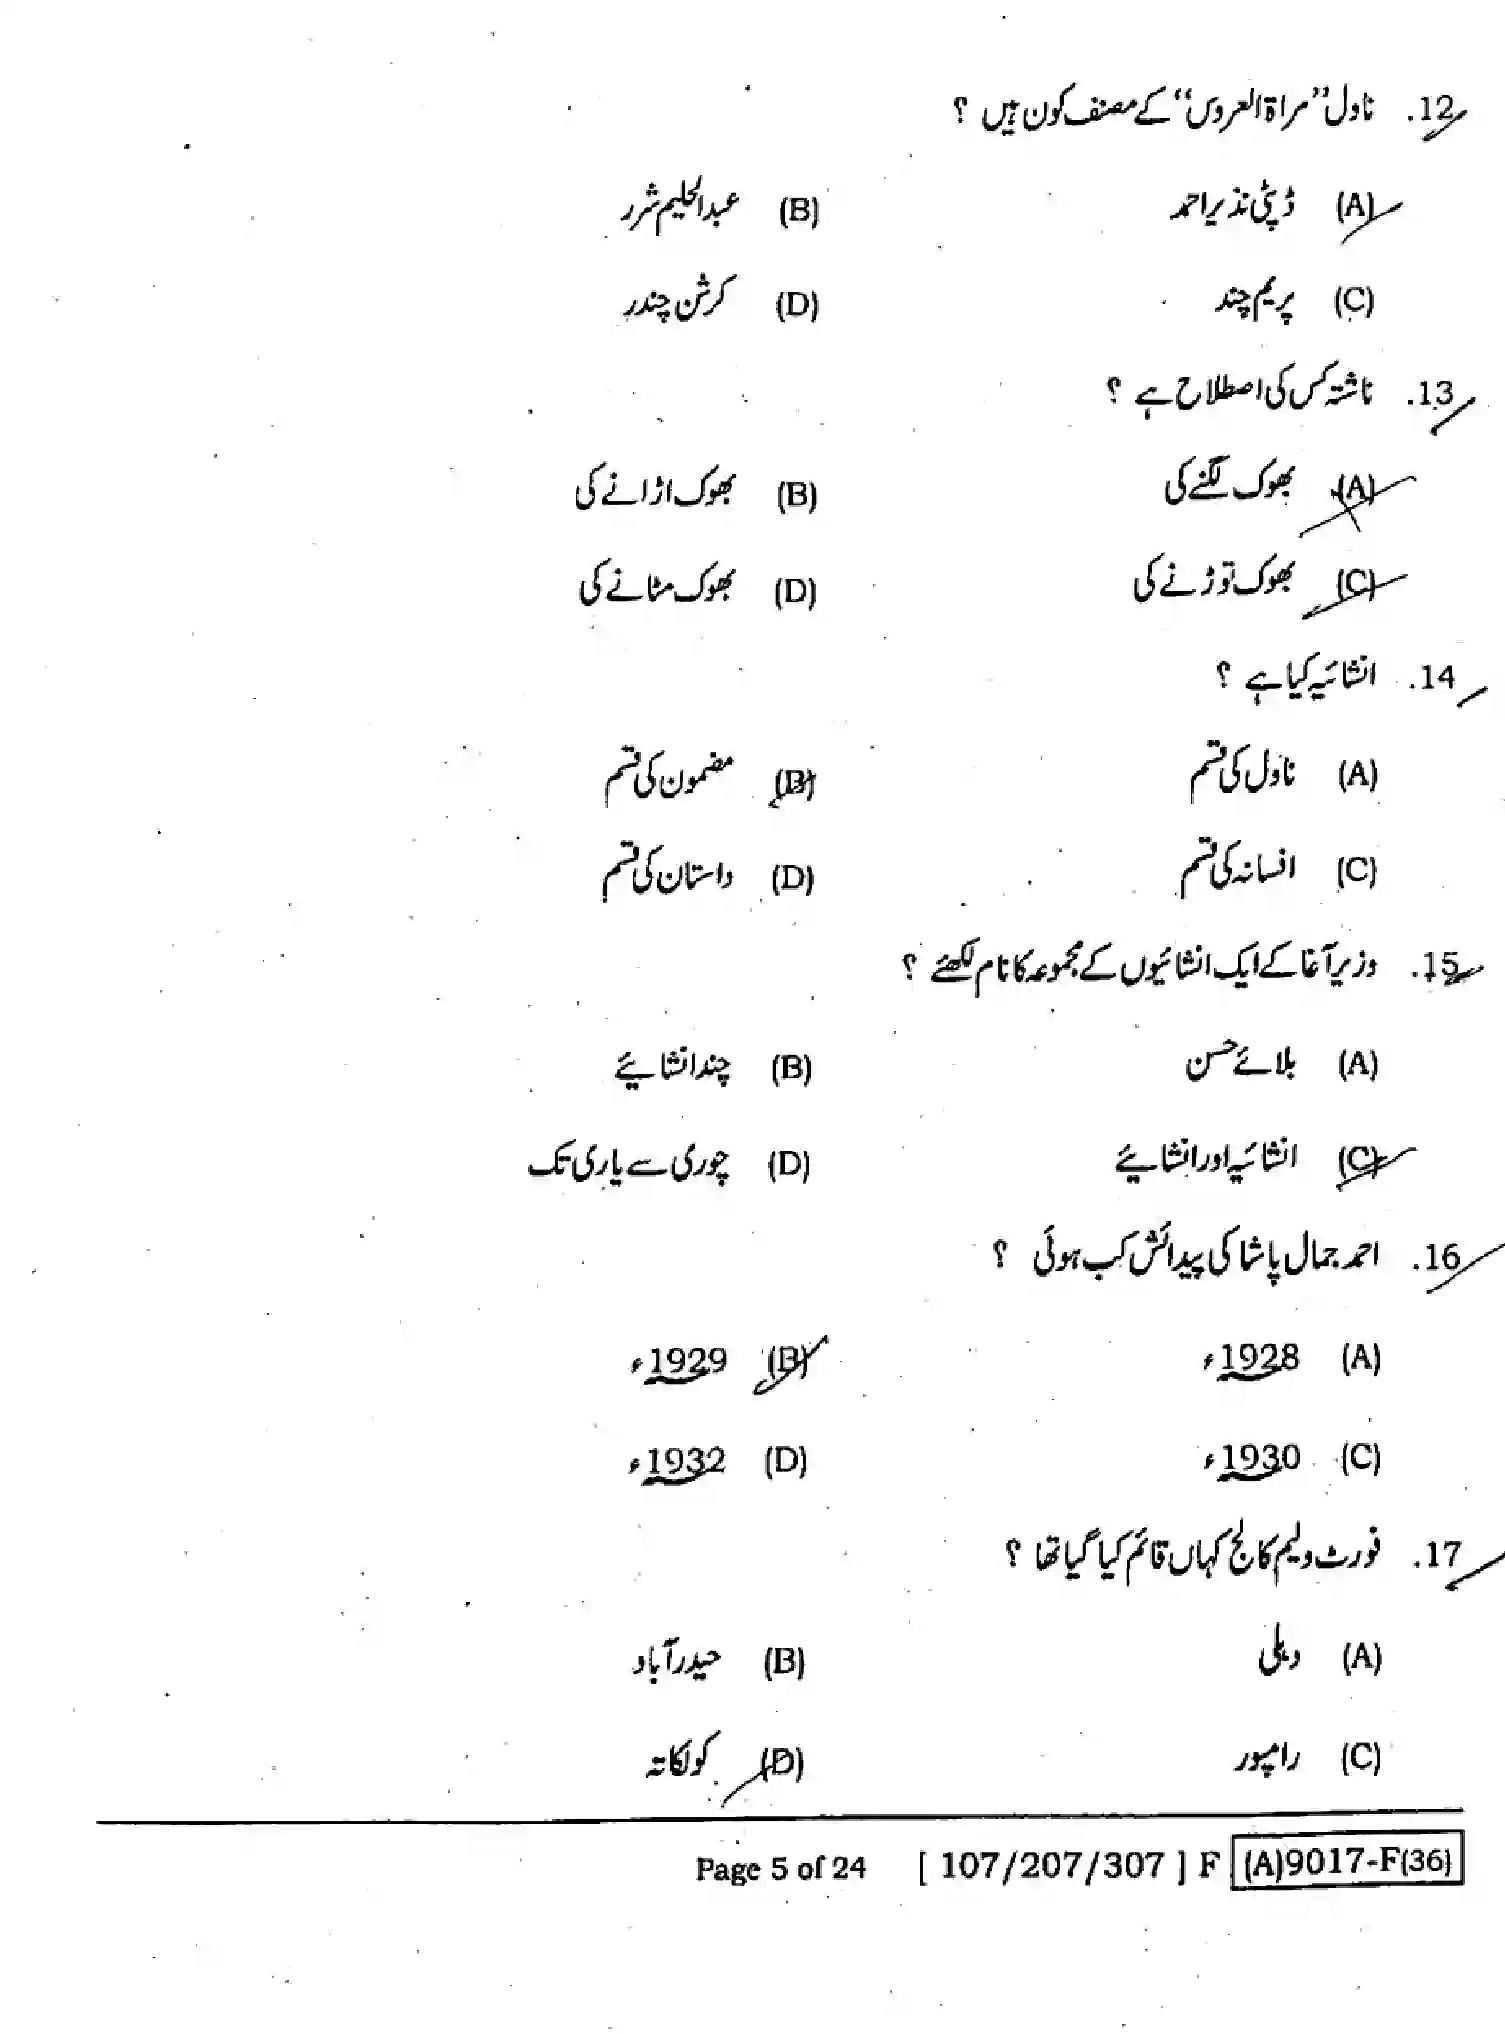 12. ناول ”مراۃ العروس“ کے مصنف کون ہیں ؟
(A) ڈپٹی نذیر احمد (B) عبدالحلیم شرر
(C) پریم چند (D) کرشن چندر
13. ناشتہ کس کی اصطلاح ہے ؟
(A) بھوک لگنے کی (B) بھوک اڑانے کی
(C) بھوک توڑنے کی (D) بھوک مٹانے کی
14. انشائیہ کیا ہے ؟
(A) ناول کی قسم (B) مضمون کی قسم
(C) افسانہ کی قسم (D) داستان کی قسم
15. وزیر آغا کے ایک انشائیوں کے مجموعہ کا نام لکھئے ؟
(A) بلائے حسن (B) چند انشایئے
(C) انشائیہ اور انشایئے (D) چوری سے یاری تک
16. احمد جمال پاشا کی پیدائش کب ہوئی ؟
(A) 1928ء (B) 1929ء
(C) 1930ء (D) 1932ء
17. فورٹ ولیم کالج کہاں قائم کیا گیا تھا ؟
(A) دہلی (B) حیدرآباد
(C) رامپور (D) کولکاتہ
Page 5 of 24 [ 107/207/307 ] F (A)9017-F(36)